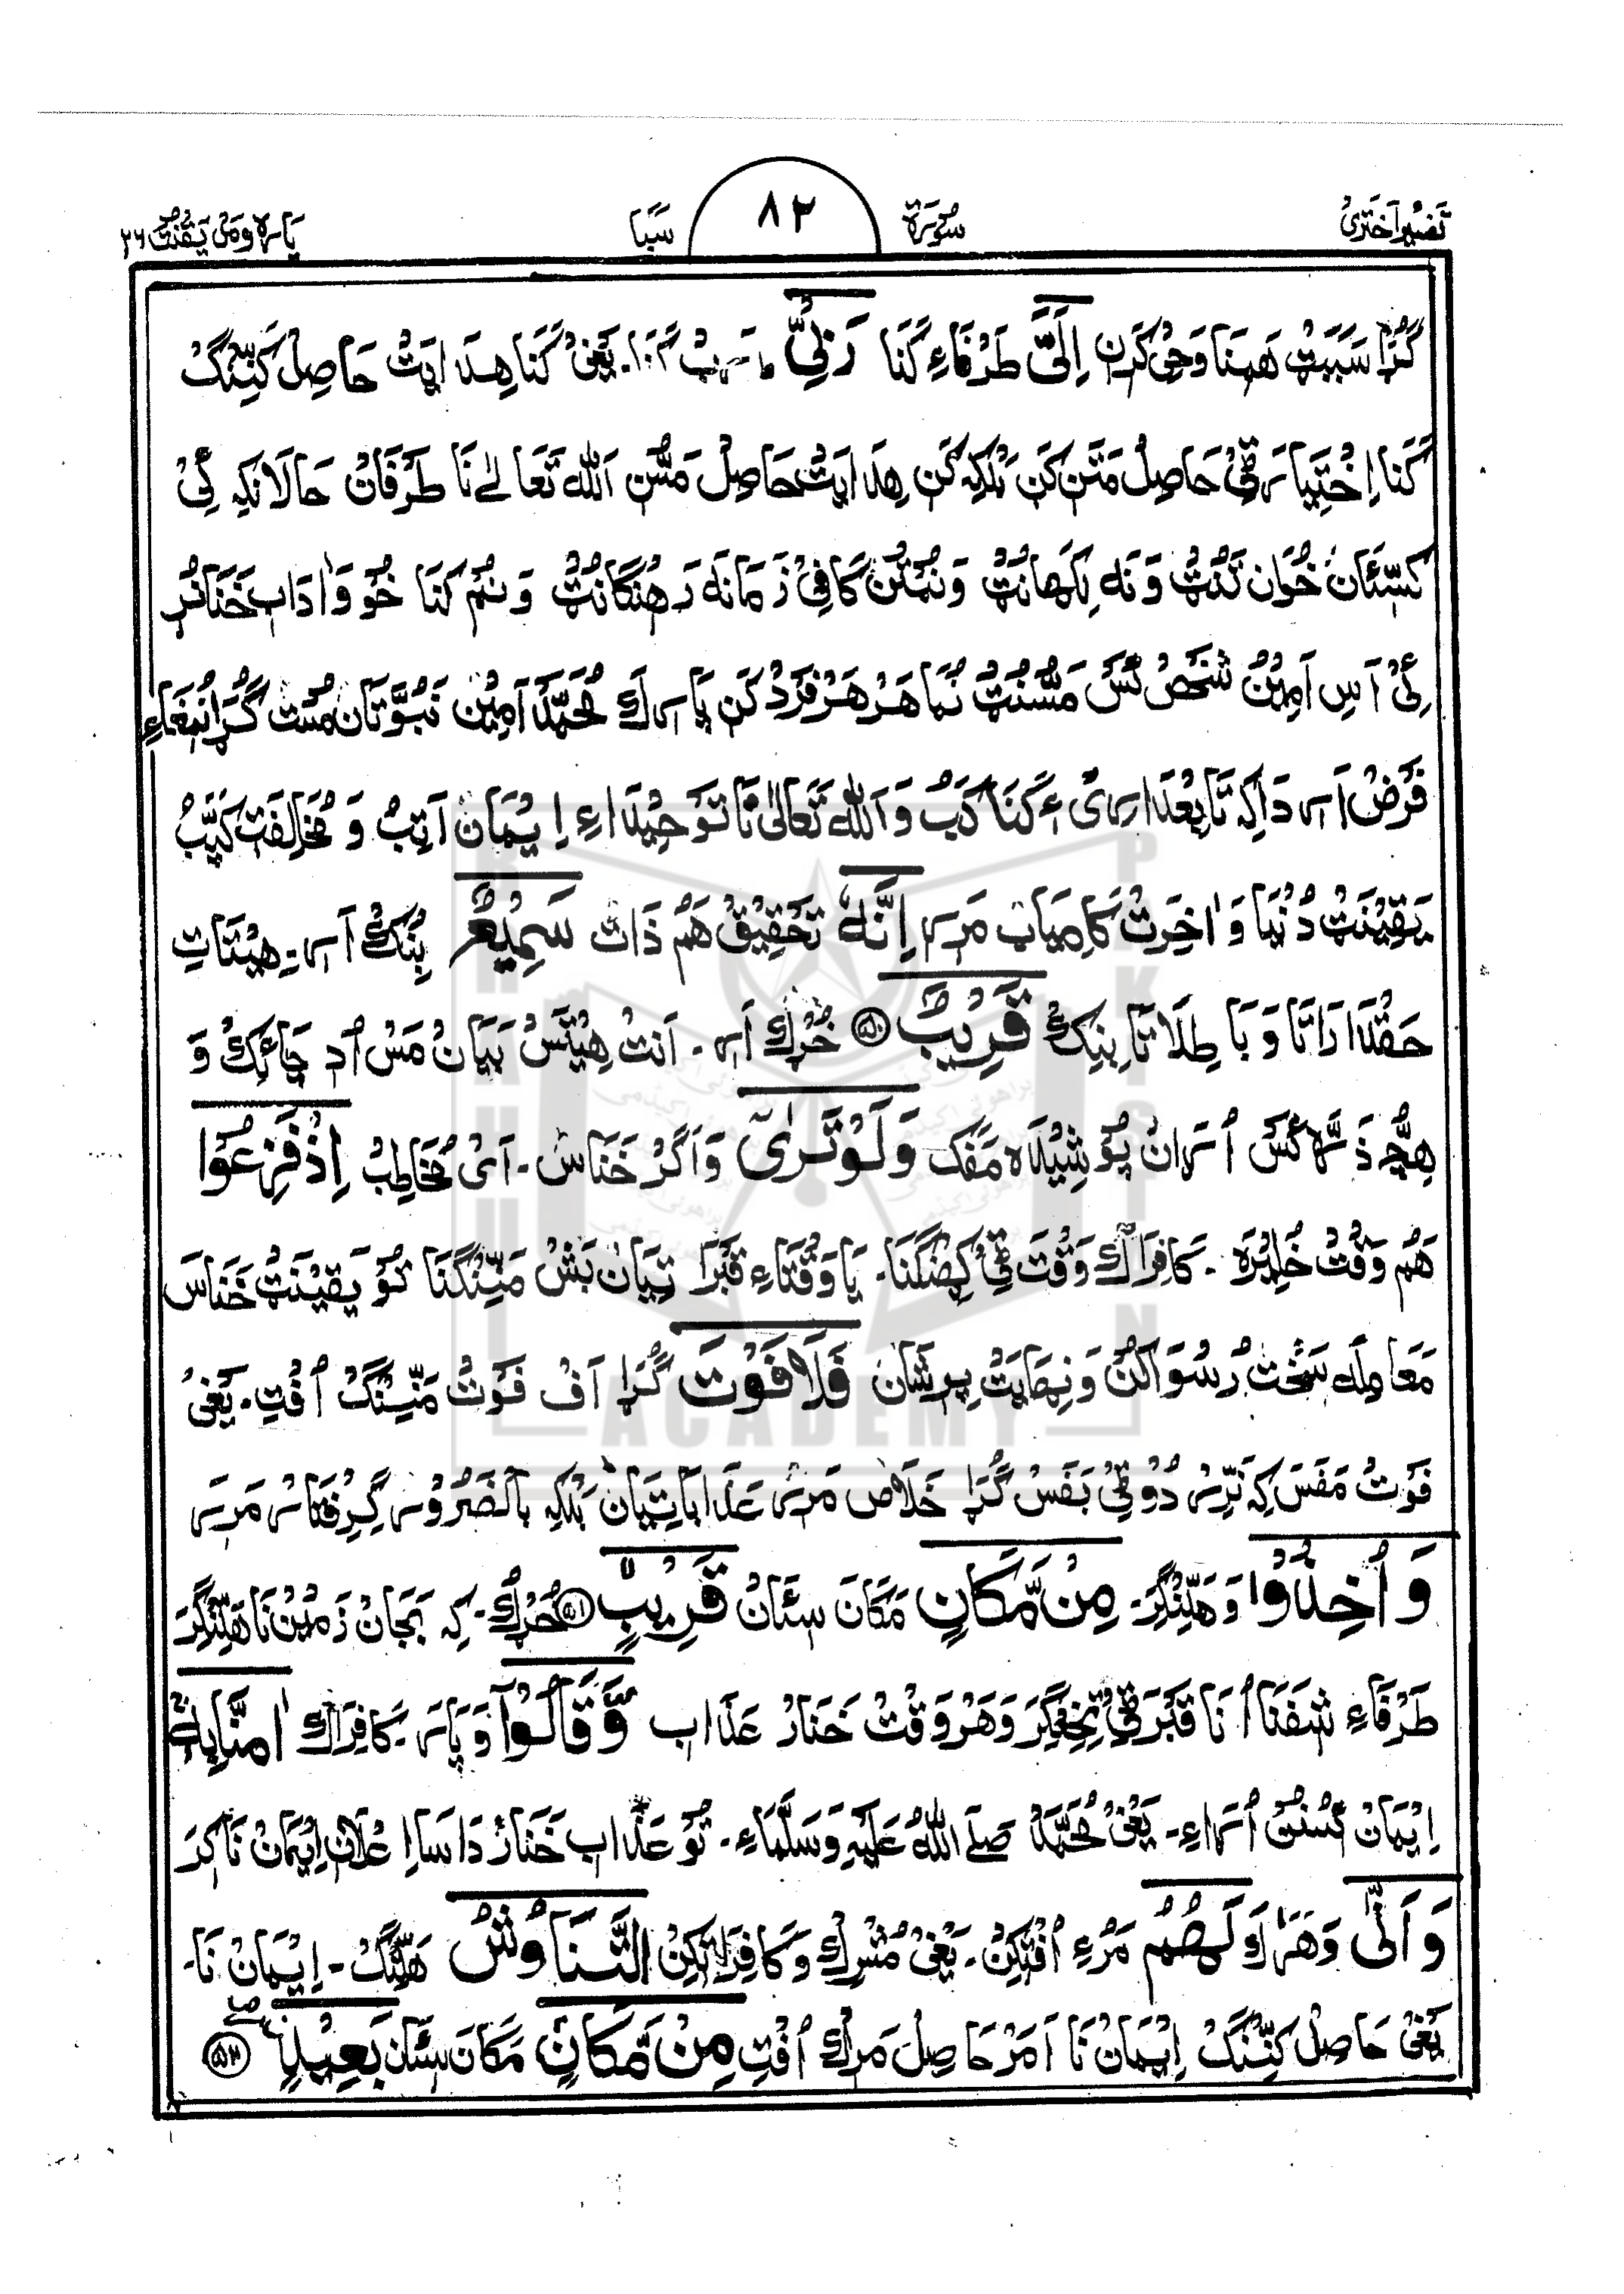 تَفسِیر اَختَرِیْ سُوْرَة ٨٢ سَبَا پَارہ وَمَنْ یَقْنُتْ ٢٢
گُڑا سَبَبَٹْ هَمنَا وَحِیْ کَرِن اِلَیَّ طَرْفَاءِ کَنَا رَبِّیْ یَعْنِیْ کَنَا هِدَایَتْ حَاصِلْ کَنِّنْگْ
کَنَا اِخْتِیَار ٹِیْ حَاصِلْ مَتَن کَن بَلْکِہ کَن هِدَایَتْ حَاصِلْ مَسُّن اَللّٰہ تَعَالٰے نَا طَرْفَانْ حَالَانکِہ اِیْ
کَسَّئَان خُوَان تَنُٹْ وَنَہ لِکھانُٹْ وَنُمْتُن کَافِیْ زَمَانَہ رَهنْگَانُٹْ وَنُم کَنَا خُو وَاٰدَاب خَنَانُر
اِیْ اَسِ اَمِیْن شَخْص ئَس مَسُّنُٹْ نُمَا هَرْ هَرْ فَرْد کَن پَارَاك مُحَمَّدْ اَمِیْن نَبُوَّتَان مُسْت گُڑا نُمَاءِ
فَرْضْ اَرِ دَاکِہ تَابِعْدَارِیْ ءِ کَنَا کَبْ وَاَللّٰہ تَعَالٰی نَا تَوْحِیْدَاءِ اِیْمَان اَتِبْ وَ مُخَالِفَتْ کَپَّبْ
یَقِیْنَٹْ دُنْیَا وَ اٰخِرَتْ کَامِیَاب مَرِرِ اِنَّہٗ تَحْقِیْق هَمْ ذَاتْ سَمِیْعٌ بِنُكْ اَرِ۔ هِیْتَاتِ
حَقْدَارَاتَا وَ بَاطِلَاتَا بِنِكْ قَرِیْبٌ ۝٥٠ خُڑْك اَرِ۔ اَنْتْ هِیْتَسْ بَیَانْ مَسْ اُد چَائِكْ وَ
هِچّ ذَرَّہ ئَسْ اُڑَانْ پُوْشِیْدَہ مَفَك وَلَوْتَرٰیٓ وَاَگَرْ خَنَاسْ۔ اَیْ مُخَاطِبْ اِذْفَزِعُوْا
هَمْ وَقْتْ خُلِیْرَہ۔ کَافِرَاك وَقْتَ ٹِیْ کَهِنْگَنَا۔ یَا وَقْتَاءِ قَبْرَا تِیَانْ بَشْ مَنِّنْگَنَا تَوْ یَقِیْنَٹْ خَنَاسَ
مَعَامِلَہ سَخْتْ رُسْوَا کُنْ وَ نِهَایَتْ پِرِیْشَان فَلَا فَوْتَ گُڑَا اَفْ فَوْتْ مَنِّنْگْ اُفْتِ۔ یَعْنِیْ
فَوْتْ مَفَسَ کِہ نَرِّرْ دُوْ ٹِیْ بَفَسْ گُڑَا خَلَاص مَرِرْ عَذَابَاتِیَانْ بَلْکِہ بِالضَّرُوْر گِرِفْتَار مَرِرَ
وَاُخِذُوْا وَهَلِّنْگِرَ۔ مِنْ مَّکَانٍ مَکَانَ سِئَانْ قَرِیْبٍ ۝٥١ خُڑُك۔ کِہ بَجَانْ زَمِیْن نَا هَلِنْگِرَ
طَرْفَاءِ شَفَنَا اُنَا قَبْرَ ٹِیْ تِخِنْگِرَ وَهَرْ وَقْتْ خَنَارْ عَذَاب وَّقَالُوْٓا وَپَارَ۔ کَافِرَاك اٰمَنَّابِہٖ
اِیْمَانْ هَسُنْ اُڑاءِ۔ یَعْنِیْ مُحَمَّدْ صَلَے اللّٰہُ عَلَیْہِ وَسَلَّمَاءِ۔ تَوْ عَذَاب خَنَارْ دَاسَا اِعْلَان اِیْمَانْ نَا کَرَ
وَاَنّٰی وَهَڑَاك لَهُمُ مَرْءِ اُفْتِکِنْ۔ یَعْنِیْ مُشْرِكْ وَکَافِرَاتِکِنْ التَّنَاوُشُ هَلِّنْگْ۔ اِیْمَانْ نَا۔
یَعْنِیْ حَاصِلْ کَنِّنْگْ اِیْمَانْ نَا اَمَرْ حَاصِلْ مَرِك اُفْتِ مِنْ مَّکَانٍ مَکَانَ سِئَان بَعِیْدٍ ۝٥٢